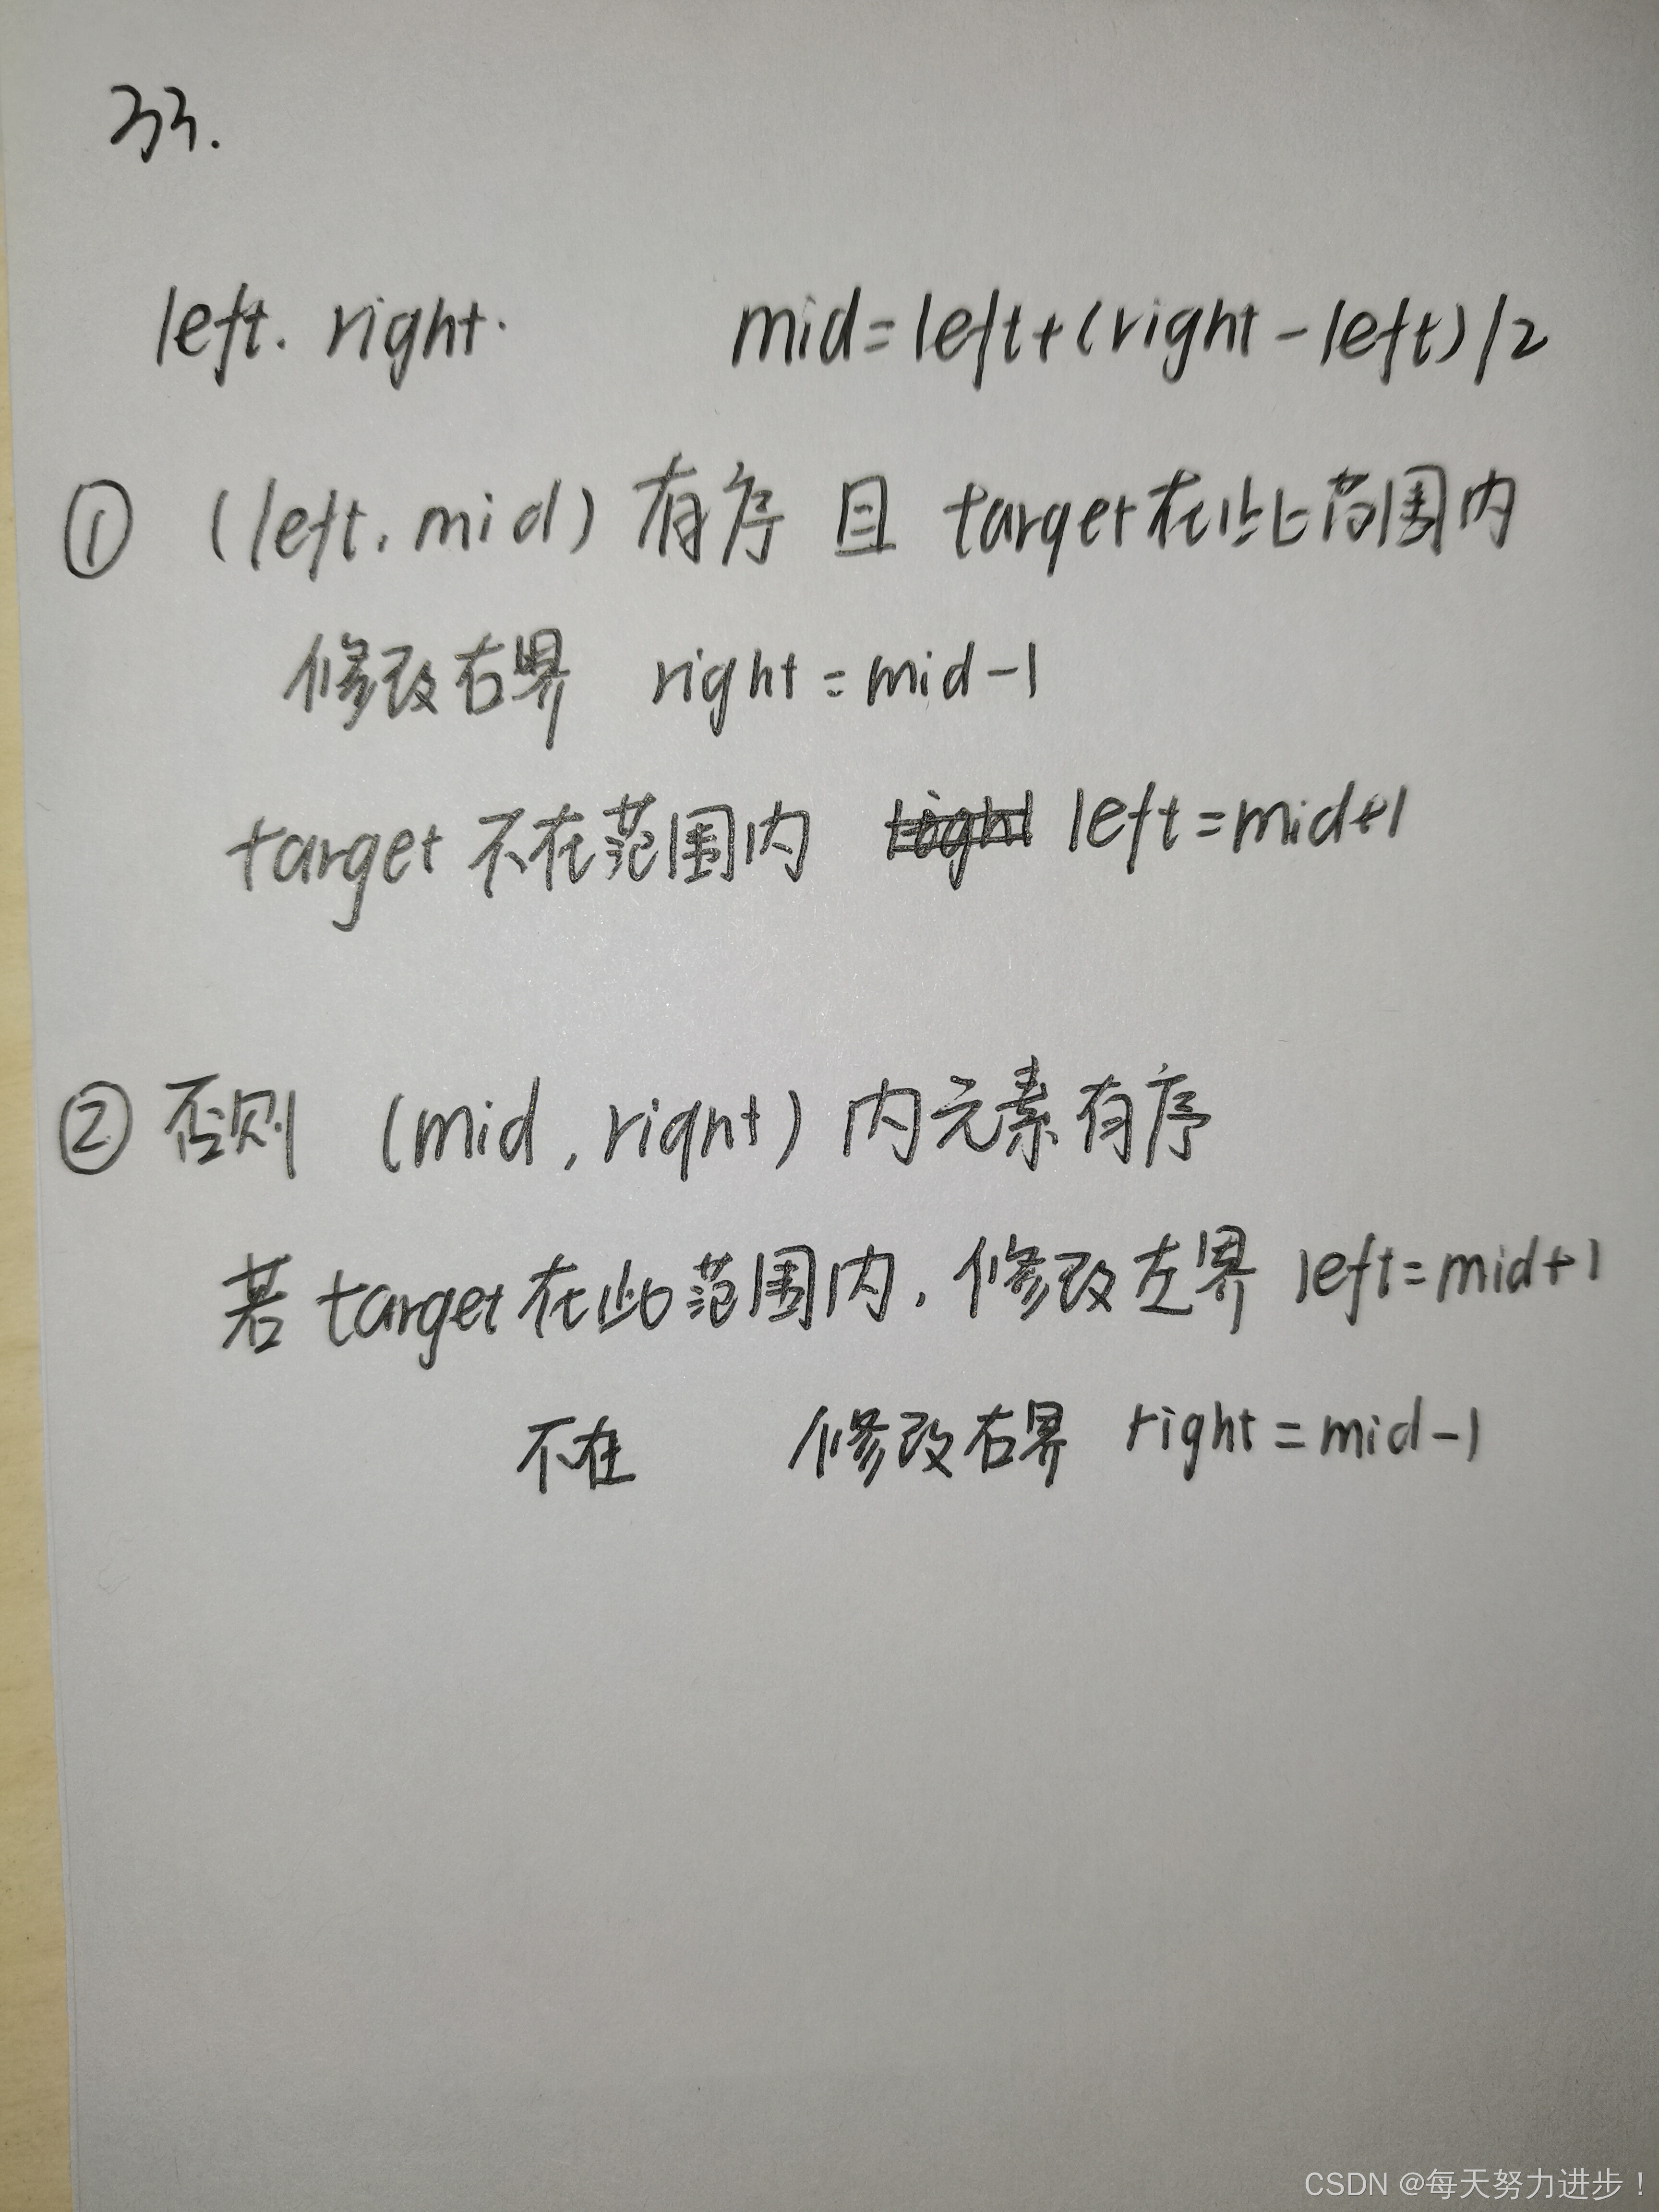 33.
left. right. mid=left+(right-left)/2
① (left, mid) 有序 且 target在此范围内
修改右界 right=mid-1
target 不在范围内 left=mid+1
② 否则 (mid, right) 内元素有序
若 target 在此范围内, 修改左界 left=mid+1
不在 修改右界 right=mid-1
CSDN @每天努力进步！